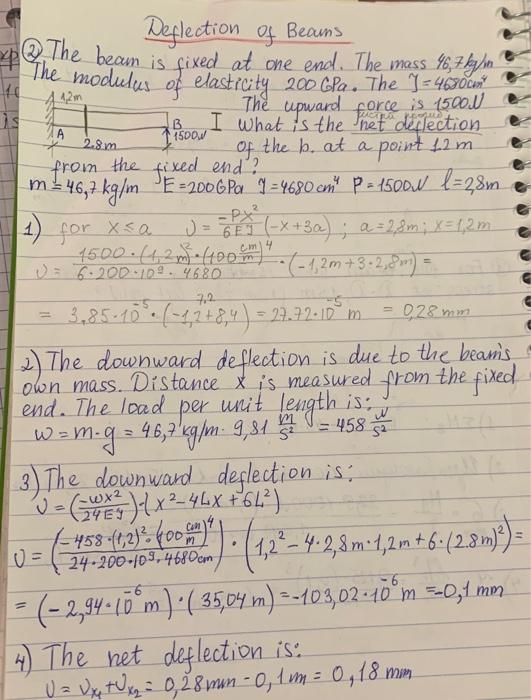 Deflection of Beams
② The beam is fixed at one end. The mass 46,7kg/m
The modulus of elasticity 200 GPa. The J=4680cm⁴
1,2m
The upward force is 1500N
A
B
I
1500N
2.8m
What is the net deflection
of the b. at a point 1.2 m
from the fixed end?
m = 46,7 kg/m E=200GPa J=4680 cm⁴ P=1500N l=2,8m
1) for x≤a υ = -Px²/6EJ (-x+3a) ; a=2,8m; x=1,2m
υ = 1500·(1,2m)²·(100 cm/m)⁴ / 6·200·10⁹·4680 · (-1,2m+3·2,8m) =
7,2
= 3,85·10⁻⁵·(-1,2+8,4) = 27.72·10⁻⁵ m = 0,28 mm
2) The downward deflection is due to the beam's
own mass. Distance x is measured from the fixed
end. The load per unit length is:
w = m·g = 46,7 kg/m · 9,81 m/s² = 458 N/s²
3) The downward deflection is:
υ = (-wx²/24EJ)·(x²-4Lx+6L²)
υ = (-458·(1,2)²·(100 cm/m)⁴ / 24·200·10⁹·4680cm) · (1,2²-4·2,8m·1,2m+6·(2.8m)²) =
= (-2,94·10⁻⁶ m)·(35,04 m) = -103,02·10⁻⁶ m = -0,1 mm
4) The net deflection is:
υ = υx₁ + υx₂ = 0,28mm - 0,1m = 0,18 mm